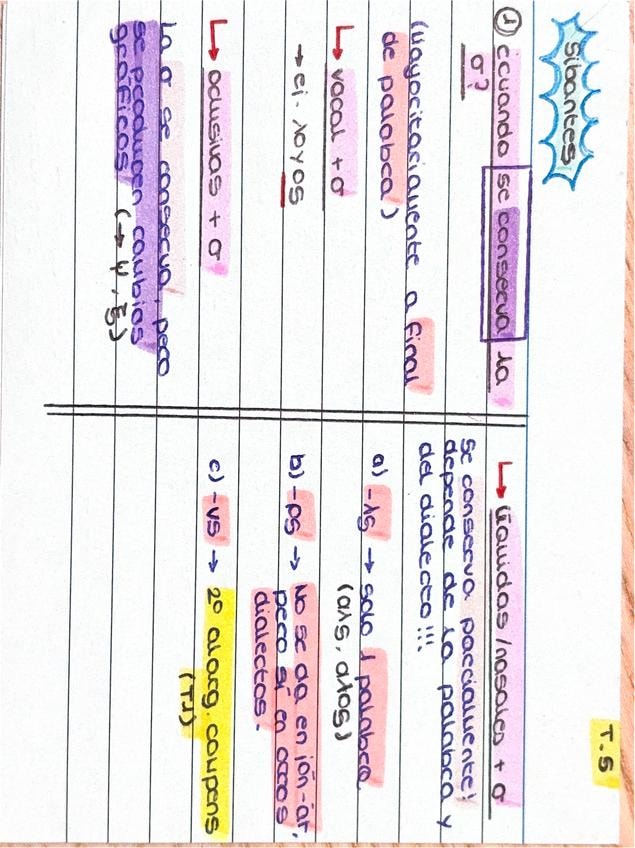 Sibantes
T.5
① ¿cuando se conserva la
σ?
(Mayoritariamente a final
de palabra)
↳ vocal + σ
→ ej. λογος
↳ oclusivas + σ
La σ se conserva, pero
se producen cambios
gráficos (→ ψ, ξ)
↳ líquidas/nasales + σ
Se conserva parcialmente!
depende de la palabra y
del dialecto!!!
a) -λς → solo 1 palabra
(αλς, αλος)
b) -ρς → No se da en jón-át,
pero sí en otros
dialectos.
c) -νς → 2º alarg. compens
(T.1)